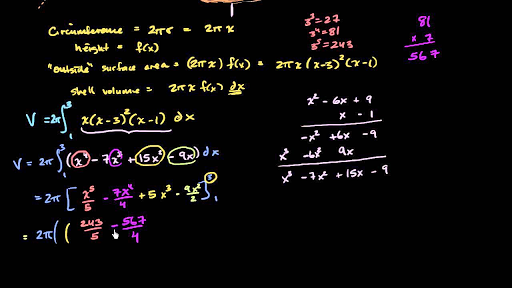 Circumference = 2πr = 2πx
height = f(x)
"outside" surface area = (2πx) f(x) = 2πx (x-3)²(x-1)
shell volume = 2πx f(x) dx
3³=27
3⁴=81
3⁵=243
81
x 7
567
V = 2π ∫₁³ x(x-3)²(x-1) dx
x² - 6x + 9
x - 1
-x² + 6x - 9
x³ -6x² 9x
x³ -7x² +15x -9
V = 2π ∫₁³ (x⁴ - 7x³ + 15x² - 9x) dx
= 2π [ x⁵/5 - 7x⁴/4 + 5x³ - 9x²/2 ]₁³
= 2π( ( 243/5 - 567/4